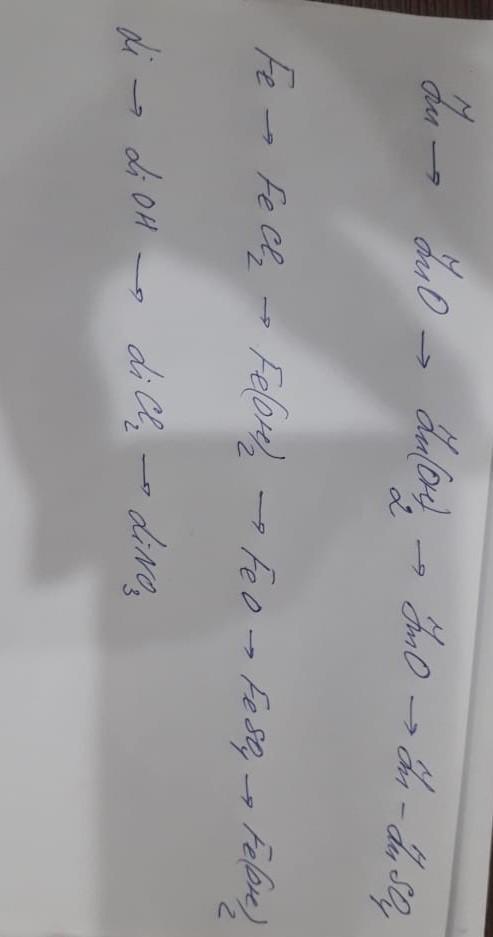 Zn → ZnO → Zn(OH)₂ → ZnO → Zn – ZnSO₄
Fe → FeCl₂ → Fe(OH)₂ → FeO → FeSO₄ → Fe(OH)₂
Li → LiOH → LiCl₂ → LiNO₃